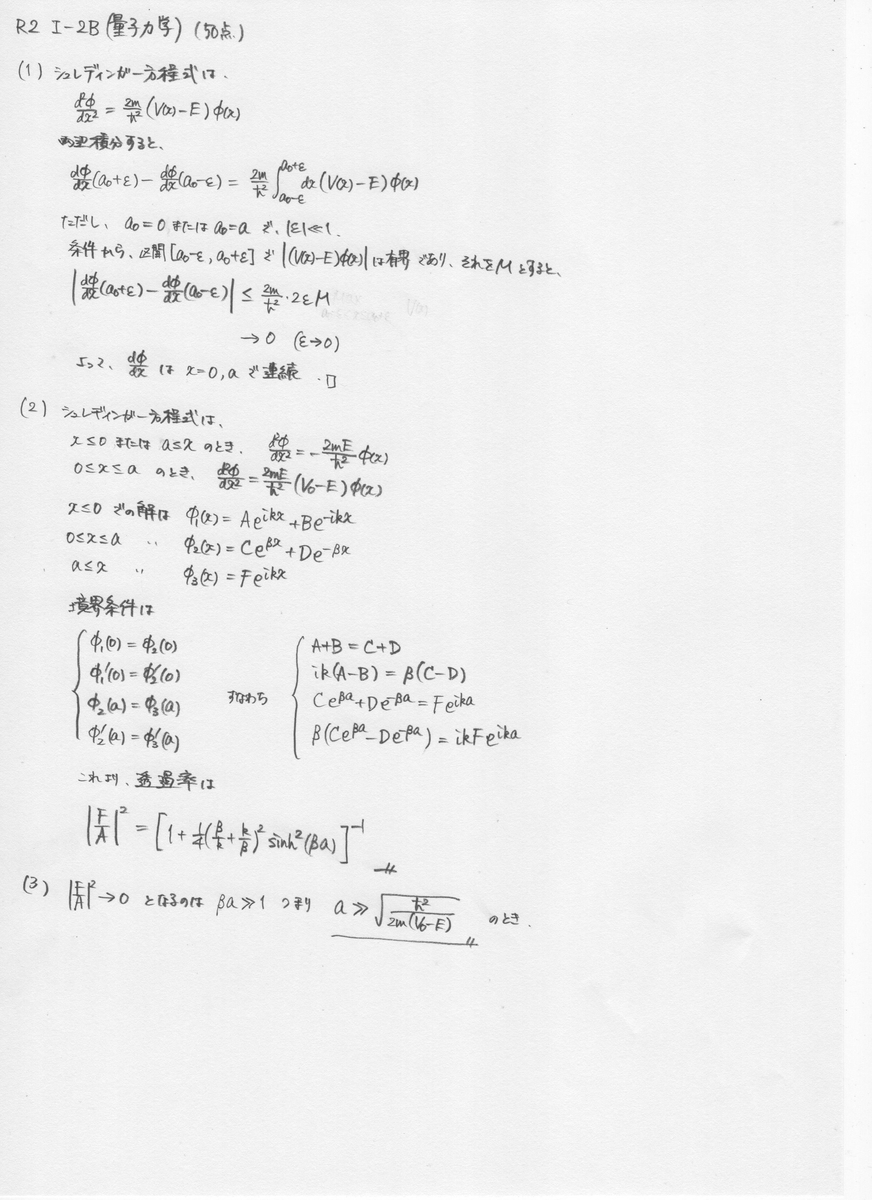 R2 I-2B (量子力学) (50点)
(1) シュレディンガー方程式は、
d²φ/dx² = 2m/ħ² (V(x)-E) φ(x)
両辺積分すると、
dφ/dx(a₀+ε) - dφ/dx(a₀-ε) = 2m/ħ² ∫_{a₀-ε}^{a₀+ε} dx (V(x)-E) φ(x)
ただし、a₀=0 または a₀=a で、|ε|≪1.
条件から、区間 [a₀-ε, a₀+ε] で |(V(x)-E)φ(x)| は有界であり、それをMとすると、
|dφ/dx(a₀+ε) - dφ/dx(a₀-ε)| ≤ 2m/ħ² · 2εM
→ 0 (ε→0)
よって、dφ/dx は x=0, a で連続. □
(2) シュレディンガー方程式は、
x≤0 または a≤x のとき、 d²φ/dx² = -2mE/ħ² φ(x)
0≤x≤a のとき、 d²φ/dx² = 2mE/ħ² (V₀-E) φ(x)
x≤0 での解は φ₁(x) = Ae^{ikx} + Be^{-ikx}
0≤x≤a 〃 φ₂(x) = Ce^{βx} + De^{-βx}
a≤x 〃 φ₃(x) = Fe^{ikx}
境界条件は
φ₁(0) = φ₂(0)
φ₁'(0) = φ₂'(0)
φ₂(a) = φ₃(a)
φ₂'(a) = φ₃'(a)
すなわち
A+B = C+D
ik(A-B) = β(C-D)
Ce^{βa} + De^{-βa} = Fe^{ika}
β(Ce^{βa} - De^{-βa}) = ikFe^{ika}
これより、透過率は
|F/A|² = [1 + 1/4 (β/k + k/β)² sinh²(βa)]^{-1}
(3) |F/A|² → 0 となるのは βa≫1 つまり a ≫ √(ħ²/2m(V₀-E)) のとき.